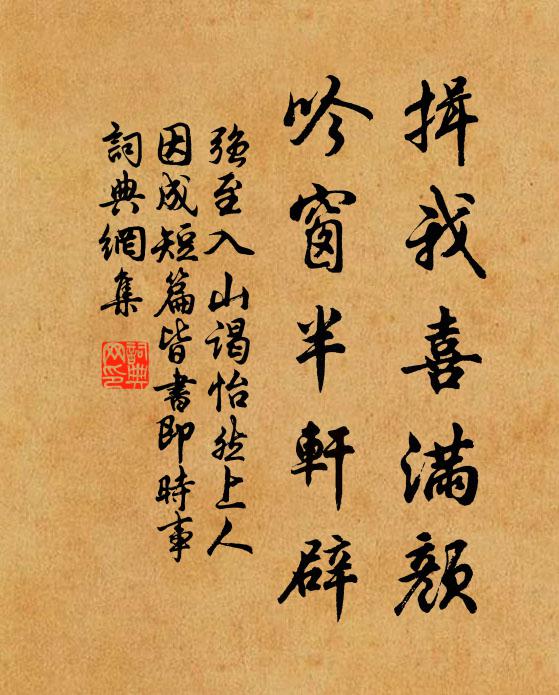 揖我喜满颜
吟窗半軒辟
强至入山谒怡然上人
因成短篇皆書即時事
詞典網集
詞典網印